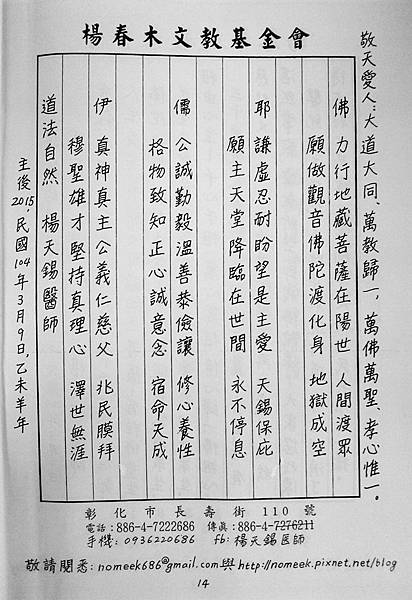 楊春木文教基金會
敬天愛人:大道大同、萬教歸一,萬佛萬聖、孝心惟一。
佛 力行地藏菩薩在陽世 人間渡眾
願做觀音佛陀渡化身 地獄成空
耶 謙虛忍耐盼望是主愛 天錫保庇
願主天堂降臨在世間 永不停息
儒 公誠勤毅溫善恭儉讓 修心養性
格物致知正心誠意念 宿命天成
伊 真神真主公義仁慈父 兆民膜拜
穆聖雄才堅持真理心 澤世無涯
道法自然 楊天錫醫師
主後2015,民國104年3月9日,乙未羊年
彰化市長壽街110號
電話:886-4-7222686 傳真:886-4-7276211
手機:0936220686 fb:楊天錫医師
敬請閱悉:nomeek686@gmail.com與http://nomeek.pixnet.net/blog
14